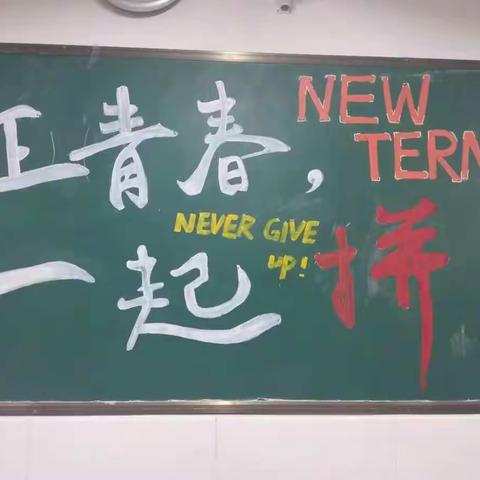 正青春,
NEW
TERM
NEVER GIVE
UP!
一起拼